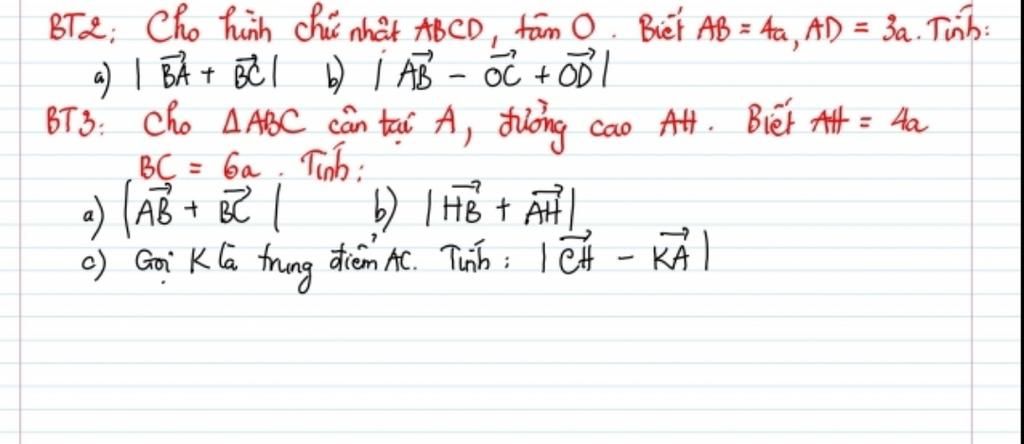 BT2: Cho hình chữ nhật ABCD, tâm O. Biết AB = 4a, AD = 3a. Tính:
a) |$\overrightarrow{BA}$ + $\overrightarrow{BC}$| b) |$\overrightarrow{AB}$ - $\overrightarrow{OC}$ + $\overrightarrow{OD}$|
BT3: Cho ΔABC cân tại A, đường cao AH. Biết AH = 4a
BC = 6a. Tính:
a) |$\overrightarrow{AB}$ + $\overrightarrow{BC}$| b) |$\overrightarrow{HB}$ + $\overrightarrow{AH}$|
c) Gọi K là trung điểm AC. Tính: |$\overrightarrow{CH}$ - $\overrightarrow{KA}$|